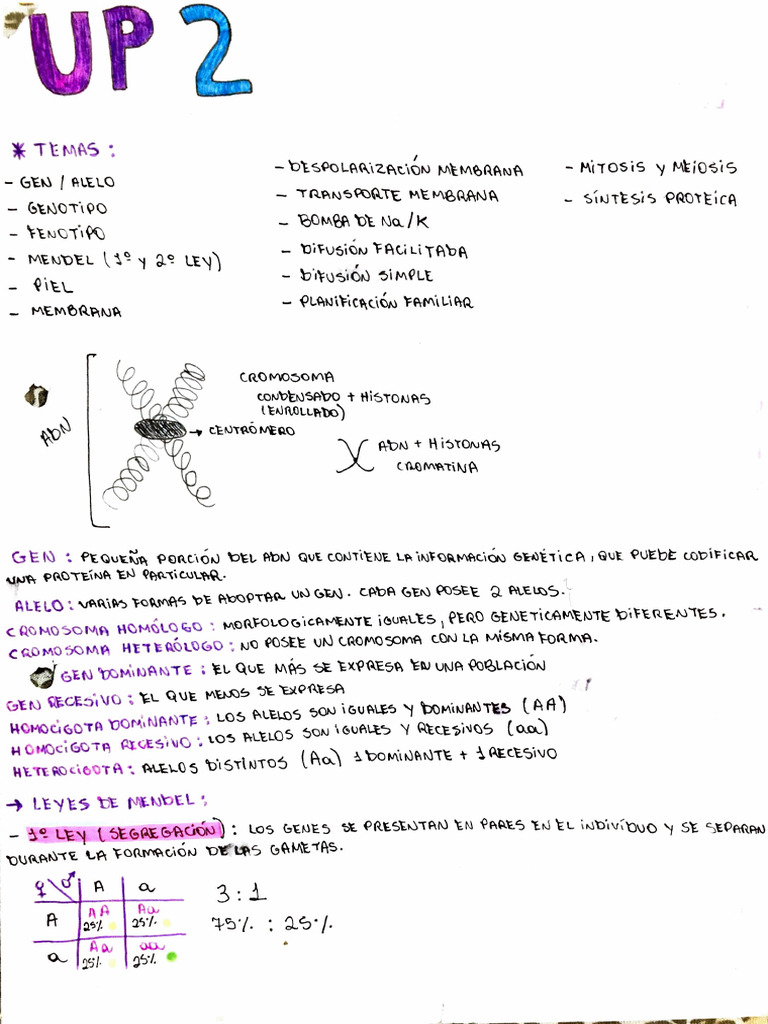 UP 2
* TEMAS:
- GEN / ALELO
- GENOTIPO
- FENOTIPO
- MENDEL (1º y 2º LEY)
- PIEL
- MEMBRANA
- DESPOLARIZACIÓN MEMBRANA
- TRANSPORTE MEMBRANA
- BOMBA DE Na/K
- DIFUSIÓN FACILITADA
- DIFUSIÓN SIMPLE
- PLANIFICACIÓN FAMILIAR
- MITOSIS y MEIOSIS
- SÍNTESIS PROTEICA
ADN
CROMOSOMA
CONDENSADO + HISTONAS
(ENROLLADO)
→ CENTRÓMERO
ADN + HISTONAS
CROMATINA
GEN: PEQUEÑA PORCIÓN DEL ADN QUE CONTIENE LA INFORMACIÓN GENÉTICA, QUE PUEDE CODIFICAR
UNA PROTEÍNA EN PARTICULAR.
ALELO: VARIAS FORMAS DE ADOPTAR UN GEN. CADA GEN POSEE 2 ALELOS.
CROMOSOMA HOMÓLOGO: MORFOLOGICAMENTE IGUALES, PERO GENETICAMENTE DIFERENTES.
CROMOSOMA HETERÓLOGO: NO POSEE UN CROMOSOMA CON LA MISMA FORMA.
GEN DOMINANTE: EL QUE MÁS SE EXPRESA EN UNA POBLACIÓN
GEN RECESIVO: EL QUE MENOS SE EXPRESA
HOMOCIGOTA DOMINANTE: LOS ALELOS SON IGUALES Y DOMINANTES (AA)
HOMOCIGOTA RECESIVO: LOS ALELOS SON IGUALES Y RECESIVOS (aa)
HETEROCIGOTA: ALELOS DISTINTOS (Aa) 1 DOMINANTE + 1 RECESIVO
→ LEYES DE MENDEL:
- 1º LEY (SEGREGACIÓN): LOS GENES SE PRESENTAN EN PARES EN EL INDIVÍDUO Y SE SEPARAN
DURANTE LA FORMACIÓN DE LAS GAMETAS.
♀ \ ♂ A a
A AA 25% Aa 25%
a Aa 25% aa 25%
3:1
75% : 25%